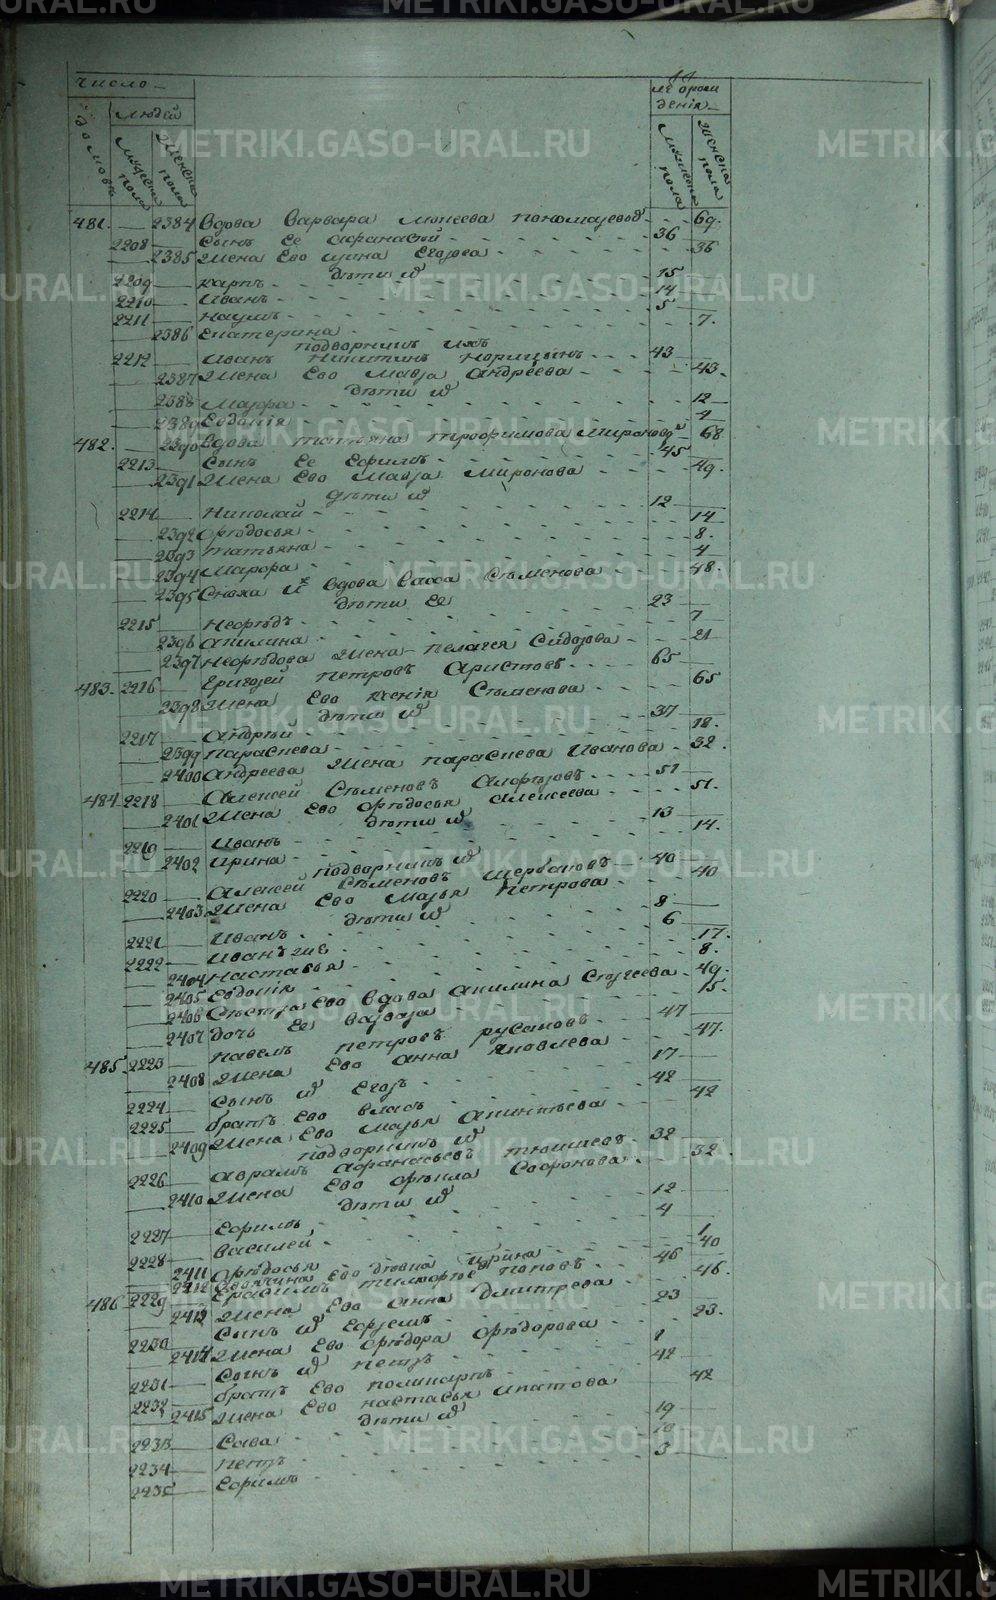 число
людей
лѣ от рожденія
домовъ
мужеска пола
женска пола
мужеска пола
женска пола
481. 2384 Вдова Варвара Моисеева Пономарева 69.
2208 Сынъ Ее Афанасей 36
2385 Жена Ево Ирина Егорова 36
дѣти их
2209 Карпъ 15
2210 Иванъ 14
2211 Наумъ 5
2386 Екатерина 7.
подворникъ ихъ
2212 Иванъ Никитинъ Норицынъ 43
2387 Жена Ево Мавра Андреева 43.
дѣти их
2388 Марфа 12
2389 Евдокія 4
482. 2390 Вдова Татьяна Трофимова Миронова 68
2213 Сынъ Ее Ефимъ 45
2391 Жена Ево Мавра Миронова 49.
дѣти их
2214 Николай 12
2392 Фѣдосья 14
2393 Татьяна 8.
2394 Марфа 4
2395 Сноха их вдова Васса Сѣменова 48.
дѣти Ее
2215 Нефѣдъ 23
2396 Акилина 7
2397 Нефѣдова Жена Пелагея Сидорова 21
483. 2216 Григорей Петровъ Аристовъ 65
2398 Жена Ево Ксенія Сѣменова 65
дѣти их
2217 Андрѣй 37
2399 Парасковья 18.
2400 Андреева Жена Параскева Иванова 32.
484 2218 Алексей Сѣменовъ Алферовъ 51
2401 Жена Ево Фѣдосья Алексеева 51.
дѣти их
2219 Иванъ 13
2402 Ирина 14.
подворникъ их
2220 Алексей Сѣменовъ Щербаковъ 40
2403 Жена Ево Марья Петрова 40
дѣти их
2221 Иванъ 8
2222 Иванъ же 6
2404 Настасья 17.
2405 Евдокія 8.
2406 Сѣстра Ево Вдова Акилина Сергеева 49.
2407 Дочь Ее Варвара 15.
485 2223 Павелъ Петровъ Русаковъ 47
2408 Жена Ево Анна Яковлева 47.
2224 Сынъ их Егоръ 17
2225 Братъ Ево Власъ 42
2409 Жена Ево Марья Акинтьева 42
подворникъ их
2226 Аврамъ Афанасьевъ Тюшневъ 32
2410 Жена Ево Фѣкла Софонова 32.
дѣти их
2227 Ефимъ 12
2228 Василей 4
2411 Фѣдосья 1
2412 Ево дѣвка Ирина 40
486 2229 Тимофѣевъ Поповъ 46
2413 Жена Ево Анна Дмитрева 46.
2230 Сынъ их Ефремъ 23
2414 Жена Ево Фѣдора Фѣдорова 23.
2231 Сынъ их Петръ 1
2232 Братъ Ево Поликарпъ 42
2415 Жена Ево Настасья Ипатова 42
дѣти их
2233 Сава 19
2234 Петръ
2235 Ефимъ 3
METRIKI.GASO-URAL.RU